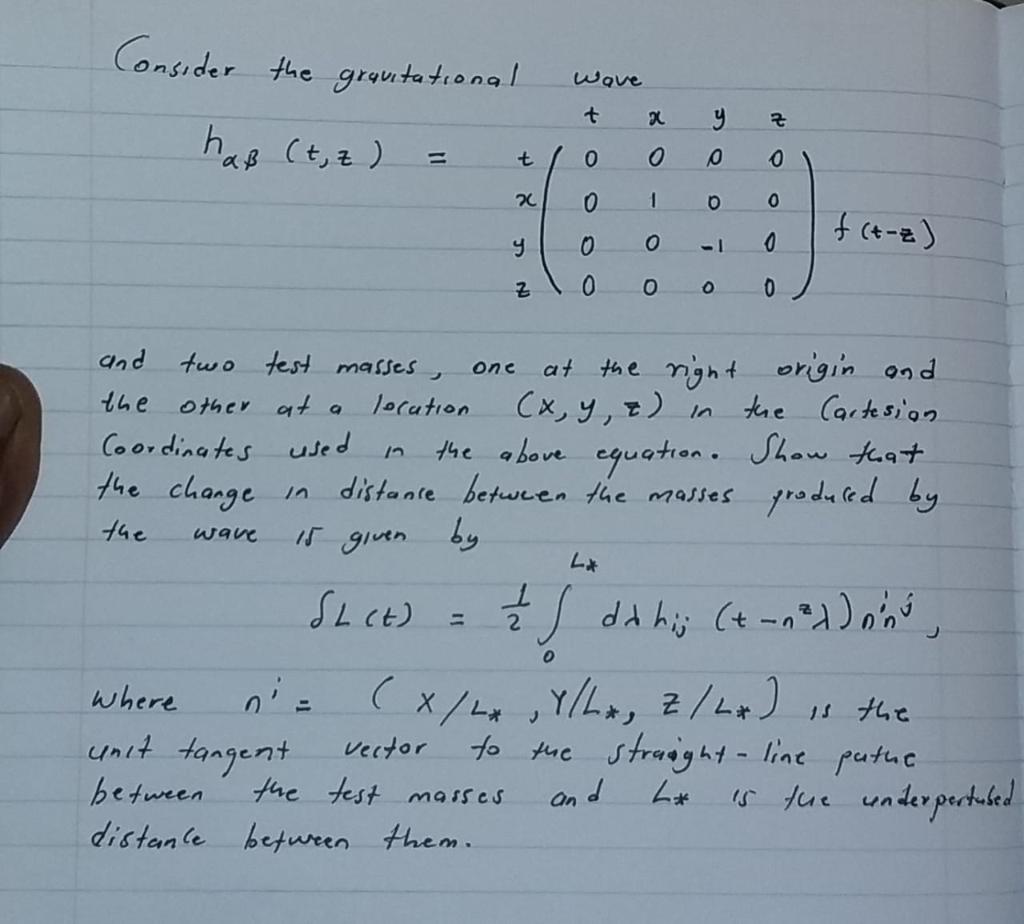 Consider the gravitational wave
t x y z
h_αβ (t, z) = t ( 0 0 0 0 )
x ( 0 1 0 0 )
y ( 0 0 -1 0 ) f(t-z)
z ( 0 0 0 0 )
and two test masses, one at the right origin and
the other at a location (x, y, z) in the Cartesian
Coordinates used in the above equation. Show that
the change in distance between the masses produced by
the wave is given by
δL(t) = 1/2 ∫_0^{L*} dλ h_ij (t - n^z λ) n^i n^j,
where n^i = (X/L*, Y/L*, Z/L*) is the
unit tangent vector to the straight-line pathe
between the test masses and L* is the underpertubed
distance between them.